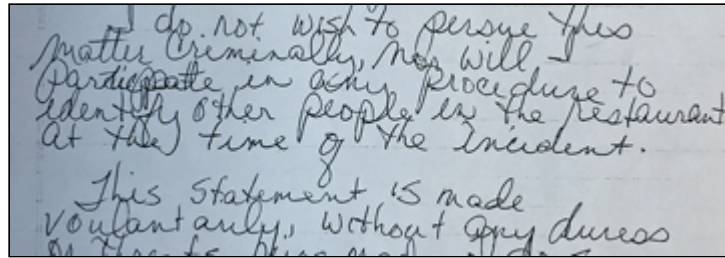 I do not wish to persue this
matter criminally, nor will I
participate in any procedure to
identify other people in the restaurant
at the time of the incident.
This statement is made
voulantarily, without any duress
or threats being made